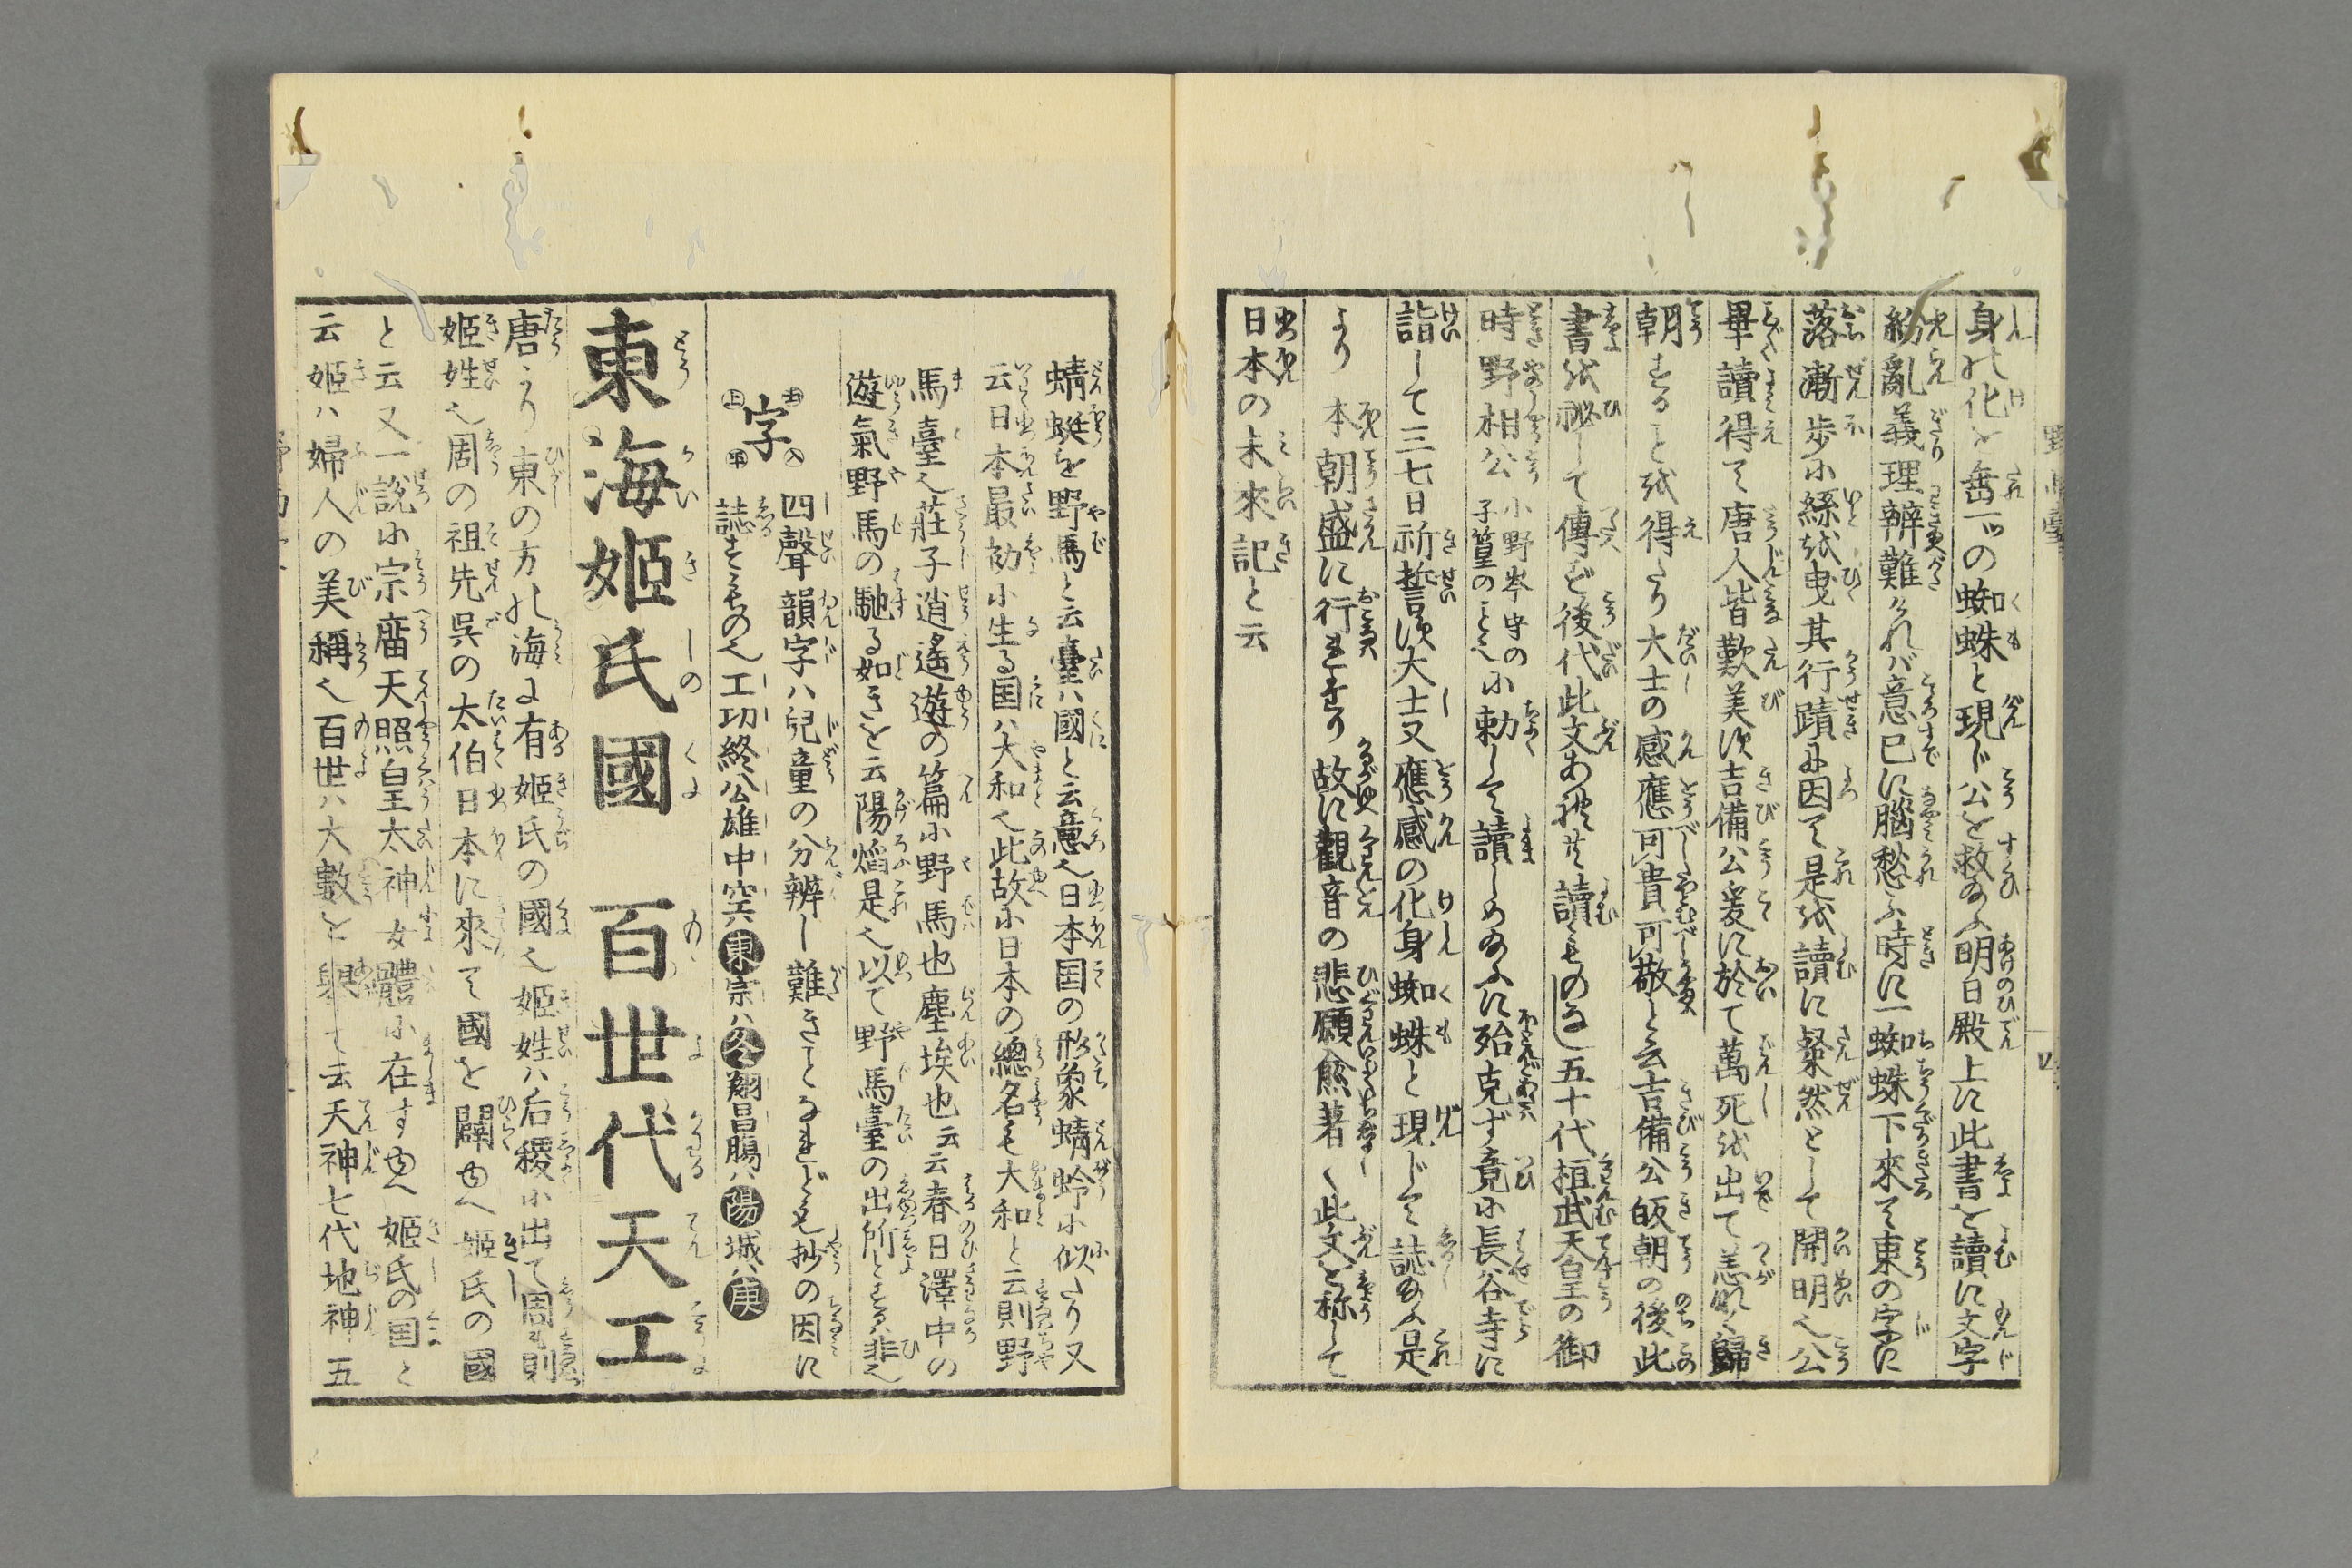 身の化を垂一ツの蜘蛛と現じ公を救給ふ明日殿上に此書を讀に文字
紛亂義理辨難ければ意已に腦愁ふ時に一蜘蛛下來て東の字に
落漸歩に絲を曳其行蹟に因て是を讀に粲然として開明也公
畢讀得て唐人皆歎美す吉備公爰に於て萬死を出て恙なく歸
朝することを得たり大士の感應可貴可敬と云吉備公皈朝の後此
書を祕して傳ど後代此文あれ共讀ものなし五十代桓武天皇の御
時野相公小野岑守の子篁のこと也に勅して讀しめ給ふに殆克ず竟に長谷寺に
詣して三七日祈誓す大士又應感の化身蜘蛛と現じて誌給ふ是
より 本朝盛に行まれり故に觀音の悲願愈著く此文を称して
日本の未來記と云
蜻蜓を野馬と云臺ハ國と云意也日本国の形象蜻蛉に似たり又
云日本最初に生る国ハ大和也此故に日本の總名も大和と云則野
馬臺也莊子逍遙遊の篇に野馬也塵埃也云云春日澤中の
遊氣野馬の馳る如きを云陽焰是也以て野馬臺の出所とする非也
字 去 上 入 平
四聲韻字ハ兒童の分辨し難きことなれども抄の因に
誌すもの也工功終公雄中空六東宗ハ冬翔昌腸ハ陽城ハ庚
東海姫氏國 百世代天工
唐より東の方の海に有姫氏の國也姫姓ハ后稷に出て周則
姫姓也周の祖先呉の太伯日本に來て國を闢ゆへ姫氏の國
と云又一説に宗廟天照皇太神女體に在すゆへ姫氏の国と
云姫ハ婦人の美稱也百世ハ大數を擧て云天神七代地神五